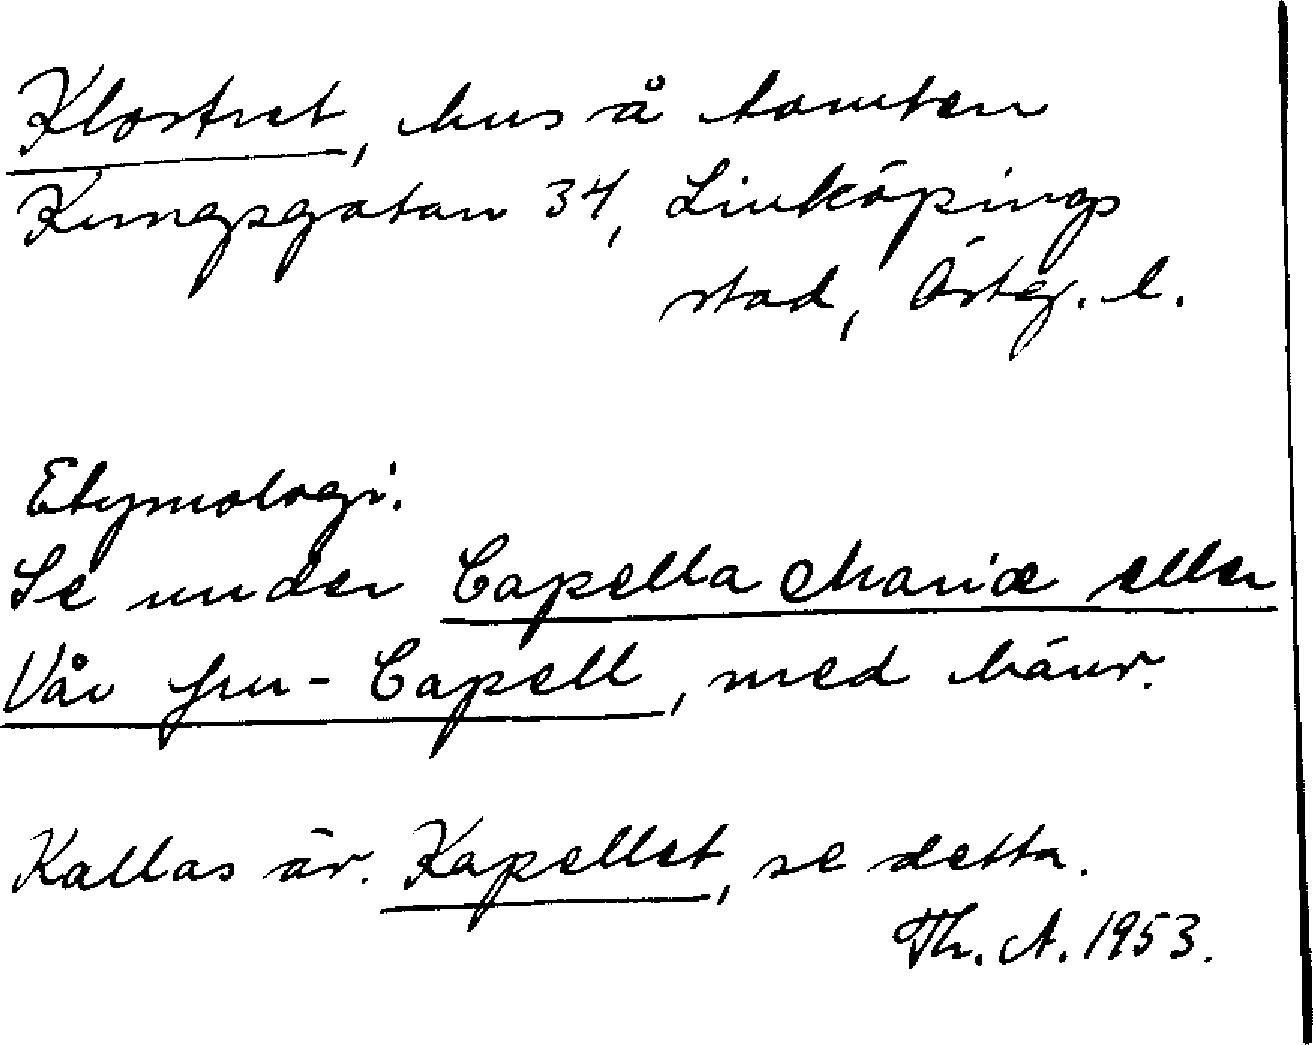 Klostret, hus å tomten
Kungsgatan 34, Linköpings
stad, Östg. l.
Etymologi.
Se under Capella Mariæ eller
Vår fru-Capell, med hänv.
Kallas äv. Kapellet, se detta.
Th. A. 1953.